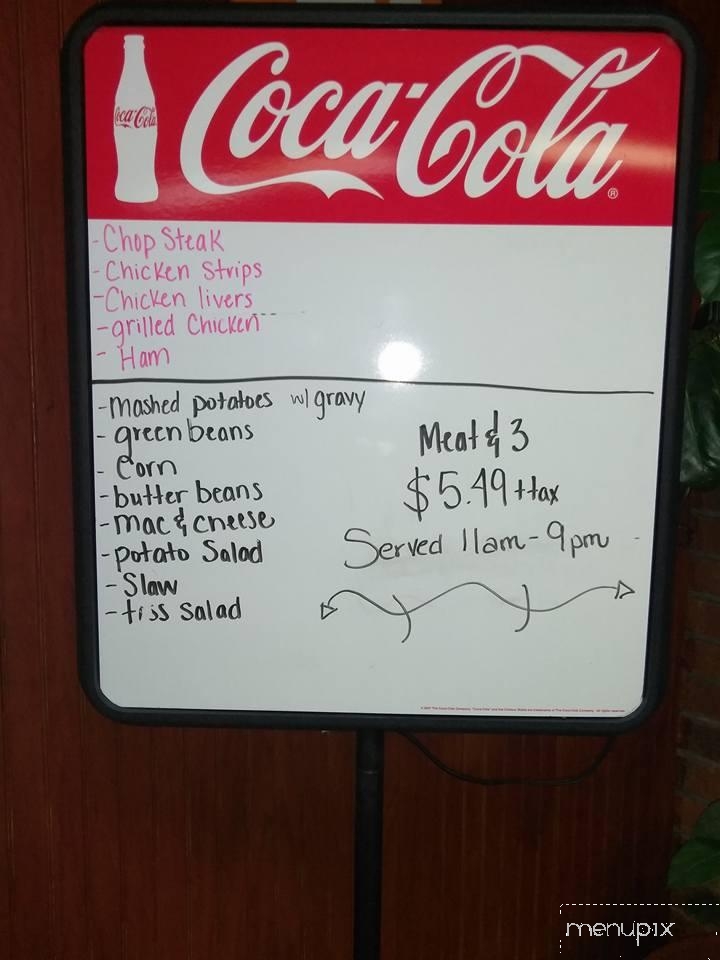 Coca-Cola
Coca-Cola®
-Chop Steak
-Chicken Strips
-Chicken livers
-grilled Chicken
- Ham
-mashed potatoes w/ gravy
- green beans
- Corn
-butter beans
-mac & cheese
-potato Salad
- Slaw
-toss Salad
Meat & 3
$5.49 + tax
Served 11am-9pm
menupix